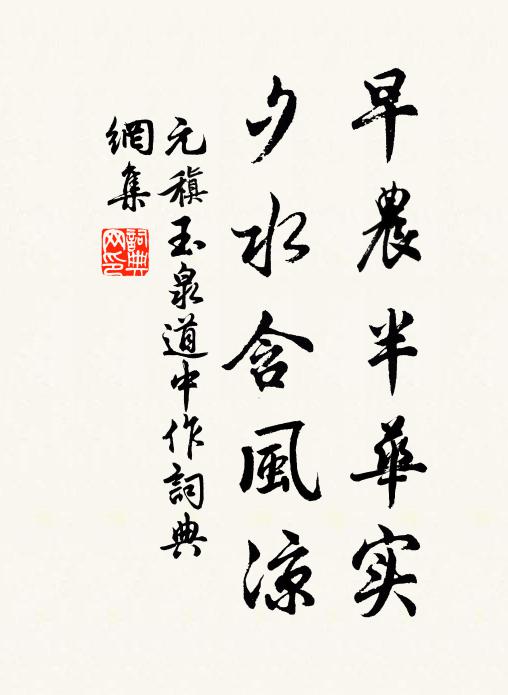 早農半華实
夕水含風凉
元稹玉泉道中作詞典
網集
詞典
网印